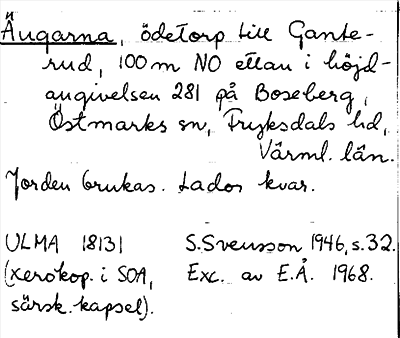 Ängarna, ödetorp till Gante-
rud, 100 m NO ettan i höjd-
angivelsen 281 på Boseberg,
Östmarks sn, Fryksdals hd,
Värml. län.
Jorden brukas. Lador kvar.
ULMA 18131 S. Svensson 1946, s. 32.
(xerokop. i SOA, Exc. av E.Å. 1968.
särsk. kapsel).